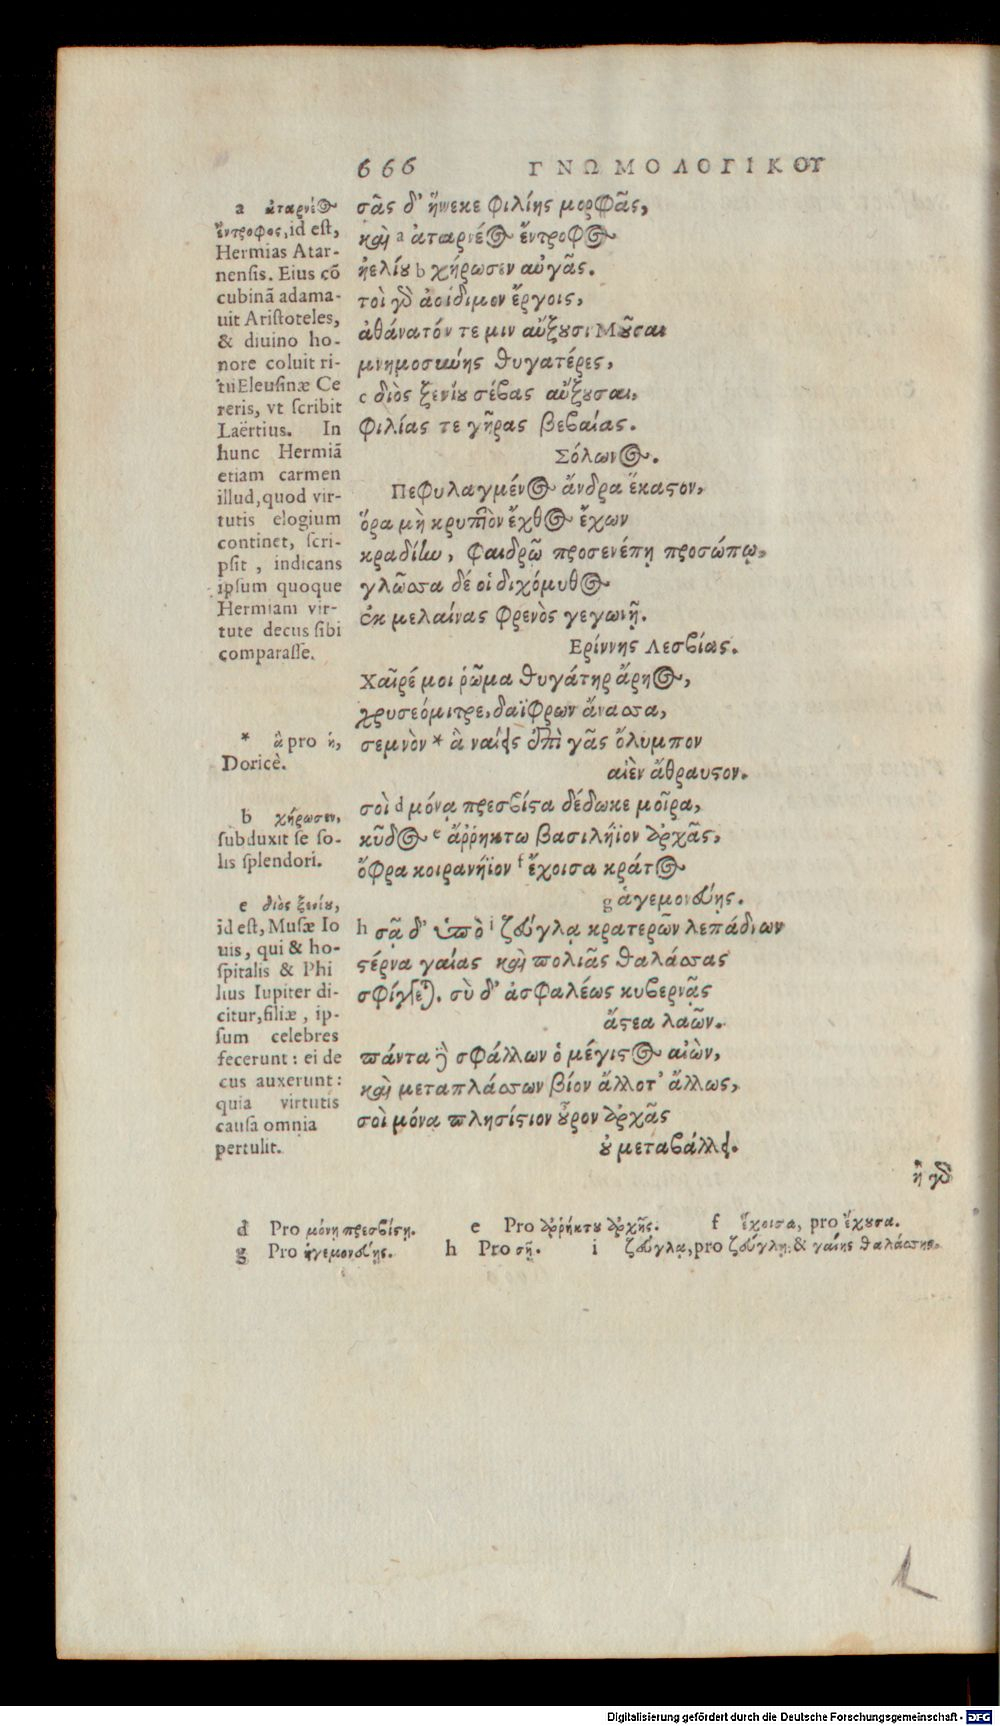 666 ΓΝΩΜΟΛΟΓΙΚΟΥ
σᾶς δ' ἥνεκε φιλίης μορφᾶς,
καὶ a ἀταρνέος ἔντροφος
ἠελίου b χήρωσεν αὐγᾶς.
τοὶ γὸ ἀοίδιμον ἔργοις,
ἀθάνατόν τε μιν αὔξουσι Μοῦσαι
μνημοσύνης θυγατέρες,
c διὸς ξενίου σέβας αὔξουσαι,
φιλίας τε γῆρας βεβαίας.
Σόλωνος.
Πεφυλαγμένος ἄνδρα ἕκαστον,
ὅρα μὴ κρυπτὸν ἔχθος ἔχων
κραδίην, φαιδρῷ προσενέπῃ προσώπῳ,
γλῶσσα δέ οἱ διχόμυθος
ἐκ μελαίνας φρενὸς γεγωνῇ.
Ερίννης Λεσβίας.
Χαῖρέ μοι ῥῶμα θυγάτηρ ἄρηος,
χρυσεόμιτρε, δαΐφρων ἄνασσα,
σεμνὸν * ἃ ναίεις ἐπὶ γᾶς ὄλυμπον
αἰὲν ἄθραυστον.
σοὶ d μόνᾳ πρεσβίστα δέδωκε μοῖρα,
κῦδος e ἀῤῥήκτω βασιλήϊον ἀρχᾶς,
ὄφρα κοιρανήϊον f ἔχοισα κράτος
g ἁγεμονεύῃς.
h σᾷ δ' ὑπὸ i ζεύγλᾳ κρατερῶν λεπάδνων
στέρνα γαίας καὶ πολιᾶς θαλάσσας
σφίγγεται. σὺ δ' ἀσφαλέως κυβερνᾷς
ἄστεα λαῶν.
πάντα δὲ σφάλλων ὁ μέγιστος αἰὼν,
καὶ μεταπλάσσων βίον ἄλλοτ' ἄλλως,
σοὶ μόνα πλησίστιον οὖρον ἀρχᾶς
οὐ μεταβάλλει.
ἦ γὸ
a ἀταρνέος
ἔντροφος, id est,
Hermias Atar-
nensis. Eius cō
cubinā adama-
uit Aristoteles,
& diuino ho-
nore coluit ri-
tu Eleusinæ Ce
reris, vt scribit
Laërtius. In
hunc Hermiā
etiam carmen
illud, quod vir-
tutis elogium
continet, scri-
psit, indicans
ipsum quoque
Hermiam vir-
tute decus sibi
comparasse.
* ἃ pro ἡ,
Doricè.
b χήρωσεν,
subduxit se so-
lis splendori.
c διὸς ξενίου,
id est, Musæ Io
uis, qui & ho-
spitalis & Phi
lius Iupiter di-
citur, filiæ, ip-
sum celebres
fecerunt: ei de
cus auxerunt:
quia virtutis
causa omnia
pertulit.
d Pro μόνῃ πρεσβίστη. e Pro ἀῤῥήκτου ἀρχῆς. f ἔχοισα, pro ἔχουσα.
g Pro ἡγεμονεύῃς. h Pro σῇ. i ζεύγλᾳ, pro ζεύγλῃ: & γαίης θαλάσσης.
Digitalisierung gefördert durch die Deutsche Forschungsgemeinschaft - DFG